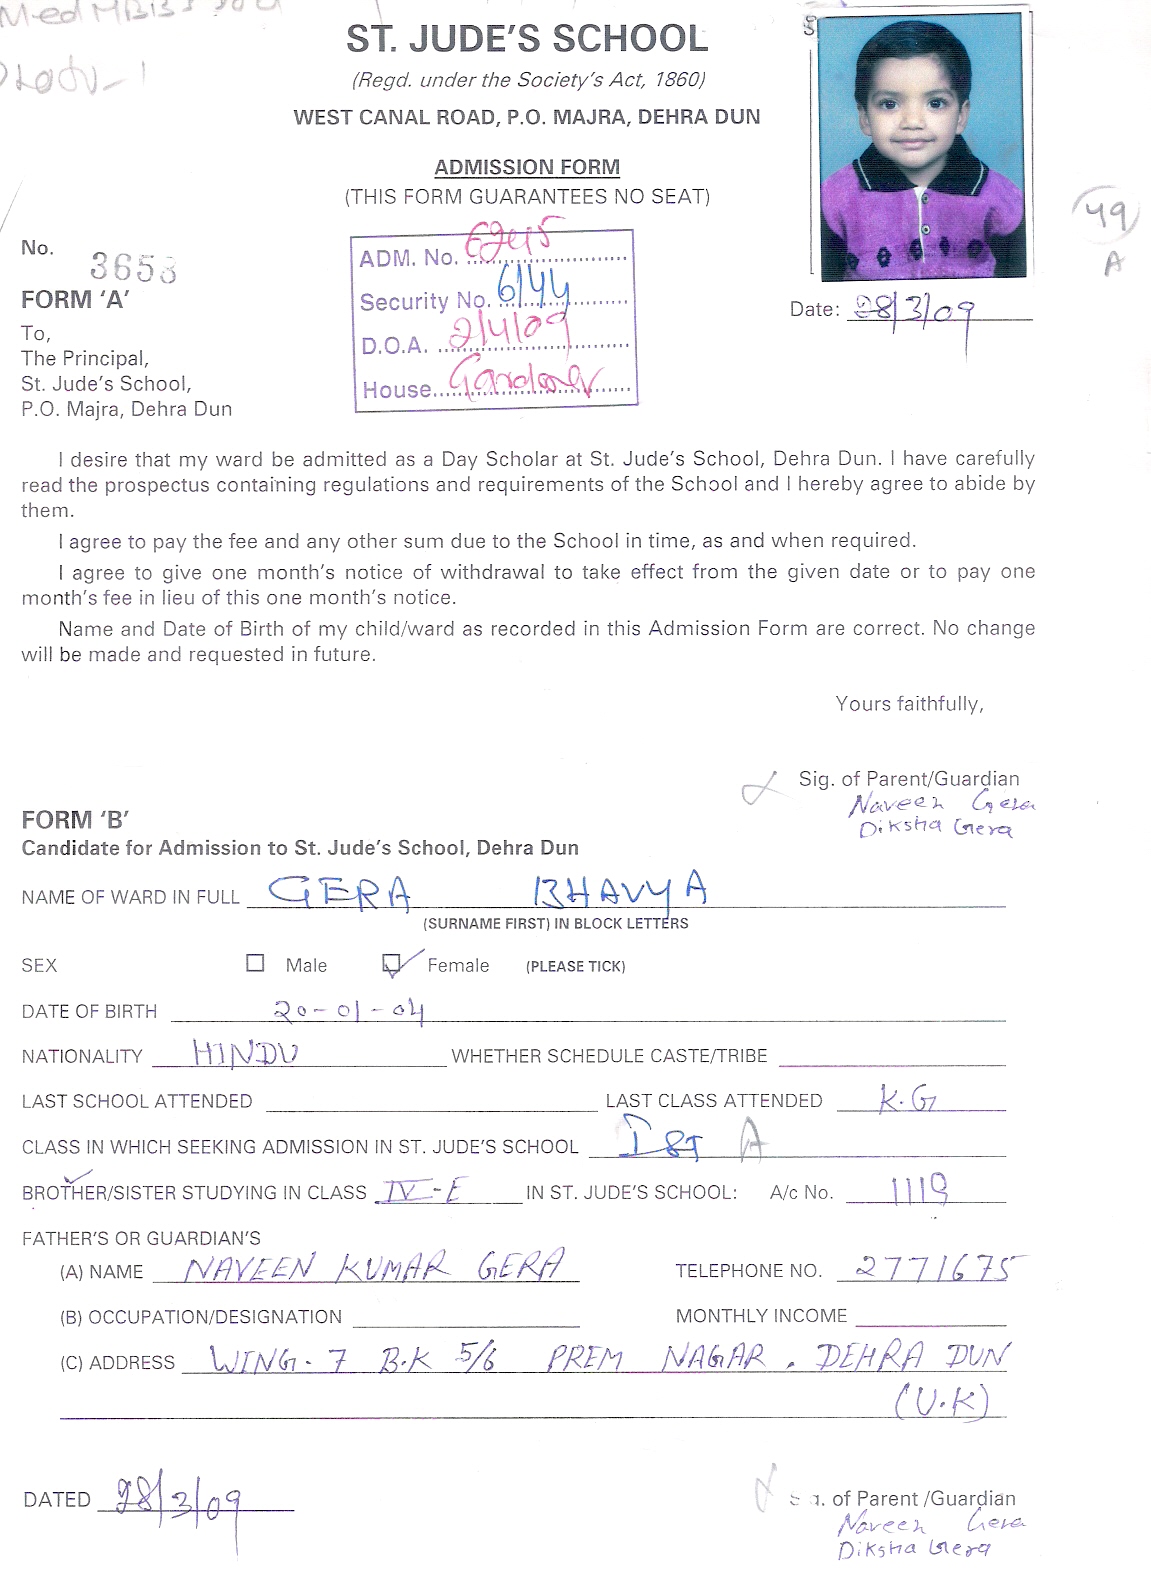 ST. JUDE'S SCHOOL
(Regd. under the Society's Act, 1860)
WEST CANAL ROAD, P.O. MAJRA, DEHRA DUN
ADMISSION FORM
(THIS FORM GUARANTEES NO SEAT)
49
A
No. 3653
ADM. No.
Security No. 6144
D.O.A. 2/4/09
House
Date: 28/3/09
FORM 'A'
To,
The Principal,
St. Jude's School,
P.O. Majra, Dehra Dun
I desire that my ward be admitted as a Day Scholar at St. Jude's School, Dehra Dun. I have carefully
read the prospectus containing regulations and requirements of the School and I hereby agree to abide by
them.
I agree to pay the fee and any other sum due to the School in time, as and when required.
I agree to give one month's notice of withdrawal to take effect from the given date or to pay one
month's fee in lieu of this one month's notice.
Name and Date of Birth of my child/ward as recorded in this Admission Form are correct. No change
will be made and requested in future.
Yours faithfully,
Sig. of Parent/Guardian
Naveen Gera
Diksha Gera
FORM 'B'
Candidate for Admission to St. Jude's School, Dehra Dun
NAME OF WARD IN FULL GERA BHAVYA
(SURNAME FIRST) IN BLOCK LETTERS
SEX Male Female (PLEASE TICK)
DATE OF BIRTH 20-01-04
NATIONALITY HINDU WHETHER SCHEDULE CASTE/TRIBE
LAST SCHOOL ATTENDED LAST CLASS ATTENDED K.G
CLASS IN WHICH SEEKING ADMISSION IN ST. JUDE'S SCHOOL Ist A
BROTHER/SISTER STUDYING IN CLASS IV-E IN ST. JUDE'S SCHOOL: A/c No. 1119
FATHER'S OR GUARDIAN'S
(A) NAME NAVEEN KUMAR GERA TELEPHONE NO. 2771675
(B) OCCUPATION/DESIGNATION MONTHLY INCOME
(C) ADDRESS WING-7 B.K 5/6 PREM NAGAR. DEHRA DUN
(U.K)
DATED 28/3/09
Sig. of Parent/Guardian
Naveen Gera
Diksha Gera